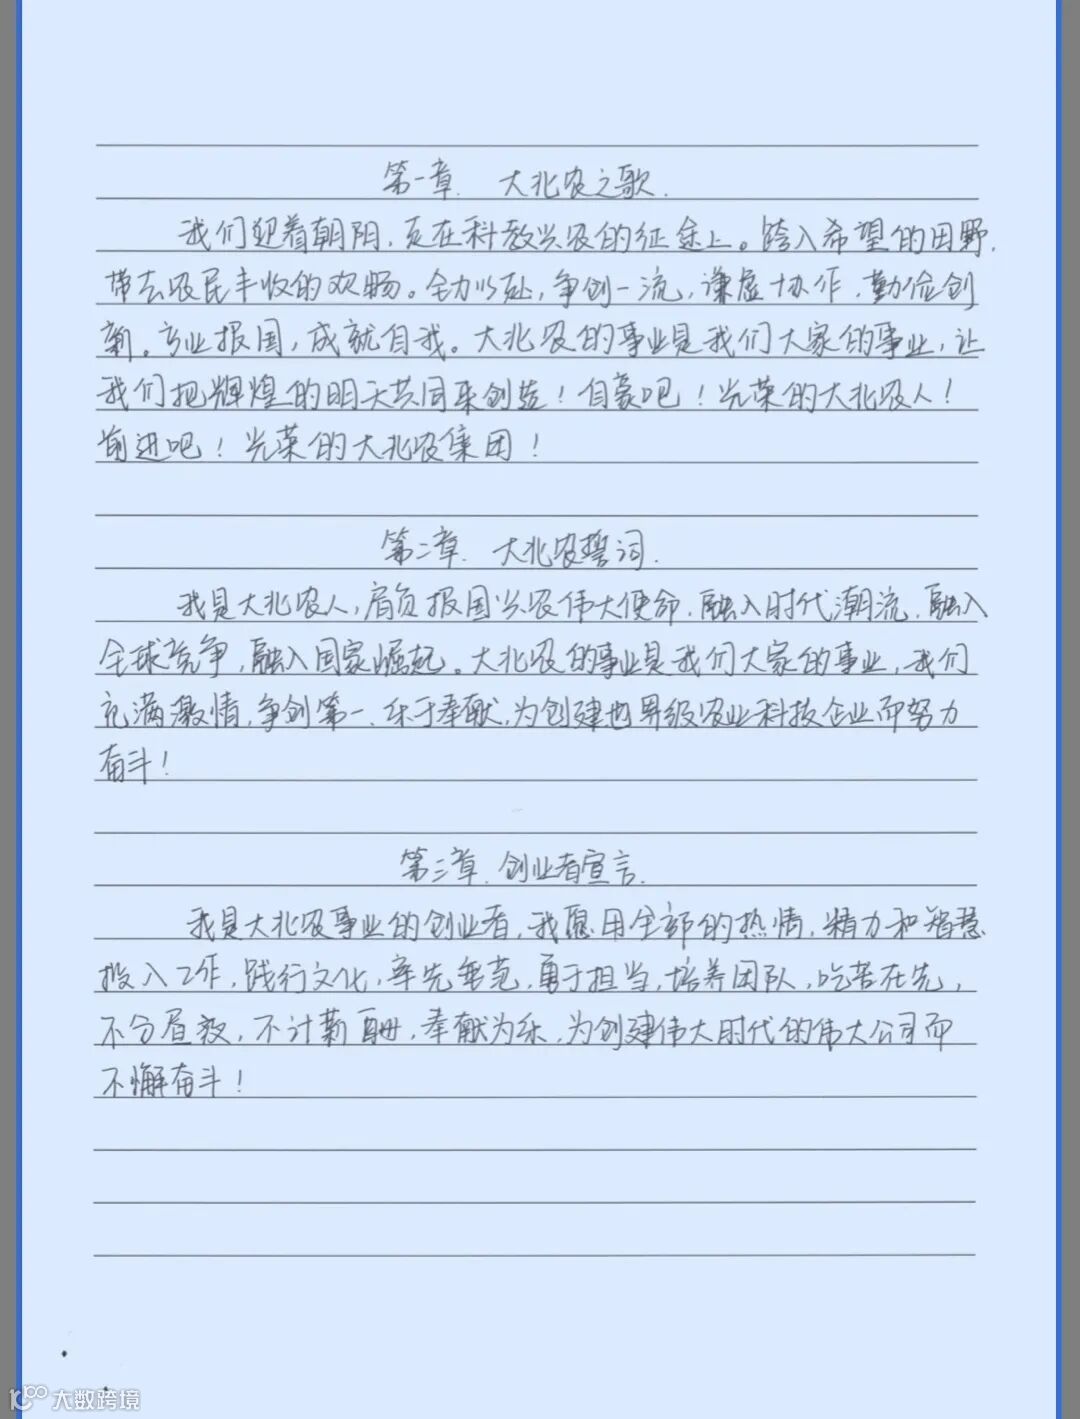 第一章. 大北农之歌.
我们迎着朝阳,走在科教兴农的征途上。跨入希望的田野,
带去农民丰收的欢畅。全力以赴,争创一流,谦虚协作,勤俭创
新。专业报国,成就自我。大北农的事业是我们大家的事业,让
我们把辉煌的明天共同来创造!自豪吧!光荣的大北农人!
前进吧!光荣的大北农集团!
第二章. 大北农誓词.
我是大北农人,肩负报国兴农伟大使命,融入时代潮流,融入
全球竞争,融入国家崛起。大北农的事业是我们大家的事业,我们
充满激情,争创第一、乐于奉献,为创建世界级农业科技企业而努力
奋斗!
第三章. 创业者宣言.
我是大北农事业的创业者,我愿用全部的热情,精力和智慧
投入工作,践行文化,率先垂范,勇于担当,培养团队,吃苦在先,
不分昼夜,不计薪酬,奉献为乐,为创建伟大时代的伟大公司而
不懈奋斗!
大数跨境